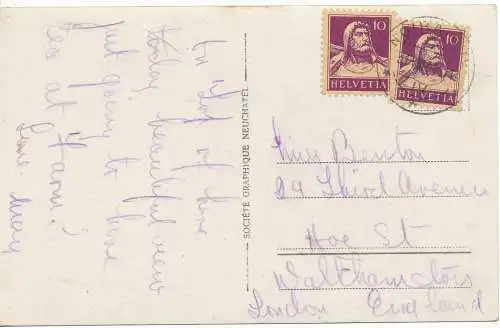 In "Lod of have
today beautiful view
just going to have
tea at "Farm".
Love. Mary
SOCIÉTÉ GRAPHIQUE NEUCHATEL
10
HELVETIA
10
HELVETIA
Miss Benton
29 Third Avenue
Hoe St
Walthamstow
London England